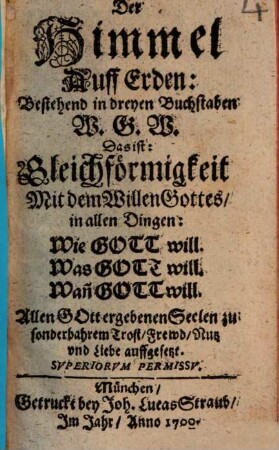 4
Der
Himmel
Auff Erden:
Bestehend in dreyen Buchstaben
W. G. W.
Das ist:
Gleichförmigkeit
Mit dem Willen Gottes/
in allen Dingen:
Wie GOTT will.
Was GOTT will.
Wañ GOTT will.
Allen GOtt ergebenen Seelen zu
sonderbahrem Trost/Frewd/Nutz
vnd Liebe auffgesetzt.
SVPERIORVM PERMISSV.
München/
Getruckt bey Joh. Lucas Straub/
Im Jahr/ Anno 1700.